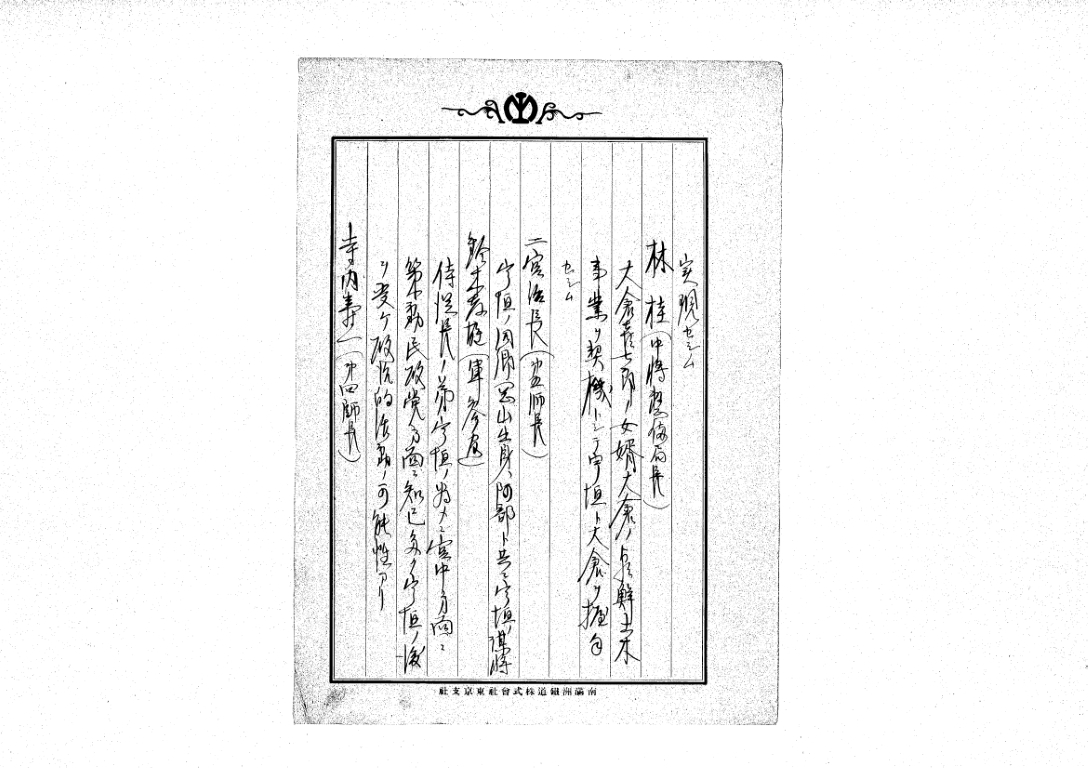 実現セシム
林 桂(中将整備局長)
大倉喜七郎ノ女婿大倉ノ朝鮮土木
事業ヲ契機トシテ宇垣ト大倉ヲ握手
セシム
二宮治長(第五師長)
宇垣ノ同郷岡山出身、阿部ト共ニ宇垣ノ謀将
鈴木孝雄(軍参官)
侍従長ノ弟宇垣ノ為メニ宮中方面ニ
策動民政党方面ニ知己多ク宇垣ノ後
ヲ受ケ政治的活動ノ可能性アリ
寺内寿一(第四師長)
南滿洲鐵道株式會社東京支社